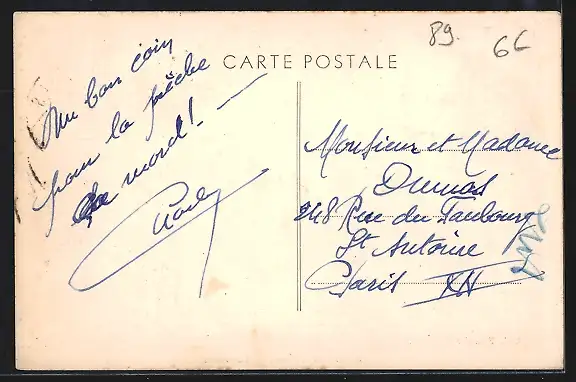 89.
6c
CARTE POSTALE
Un bon coin
pour la pêche
ça mord! —
Monsieur et Madame
Dumas
248 Rue du Faubourg
St Antoine
Paris XII